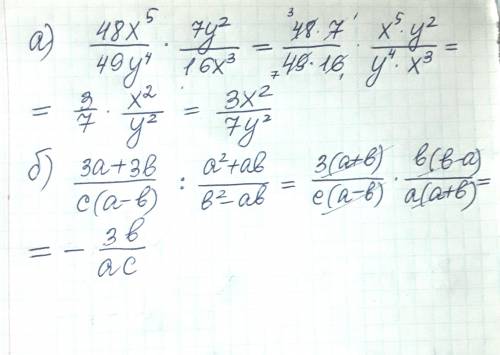 а) 48x⁵/49y⁴ · 7y²/16x³ = ³48·7¹/₇49·16₁ · x⁵·y²/y⁴·x³ =
= 3/7 · x²/y² = 3x²/7y²
б) 3a+3в/c(a-в) : a²+aв/в²-aв = 3(a+в)/c(a-в) · в(в-a)/a(a+в) =
= - 3в/ac